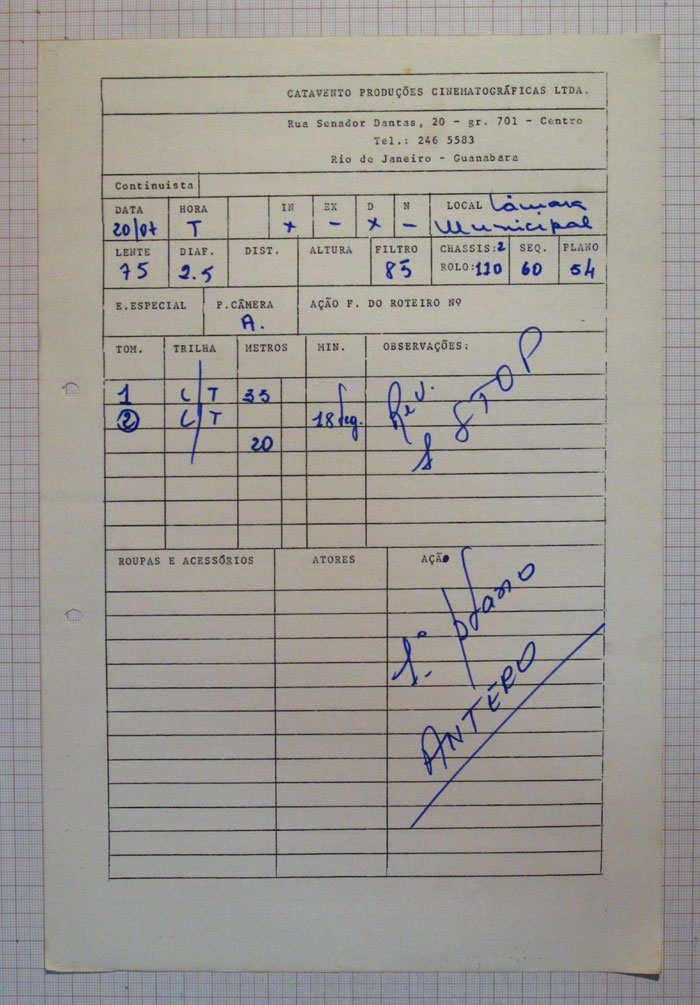 CATAVENTO PRODUÇÕES CINEMATOGRÁFICAS LTDA.
Rua Senador Dantas, 20 - gr. 701 - Centro
Tel.: 246 5583
Rio de Janeiro - Guanabara
Continuista
DATA HORA IN EX D N LOCAL Câmara
20/07 T x - x - Municipal
LENTE DIAF. DIST. ALTURA FILTRO CHASSIS: 2 SEQ. PLANO
75 2.5 85 ROLO: 110 60 54
E.ESPECIAL P.CÂMERA AÇÃO F. DO ROTEIRO Nº
A.
TOM. TRILHA METROS MIN. OBSERVAÇÕES:
1 C/T 35
2 C/T 18 seg. Rev.
20 STOP
ROUPAS E ACESSÓRIOS ATORES AÇÃO
1º plano
ANTERO